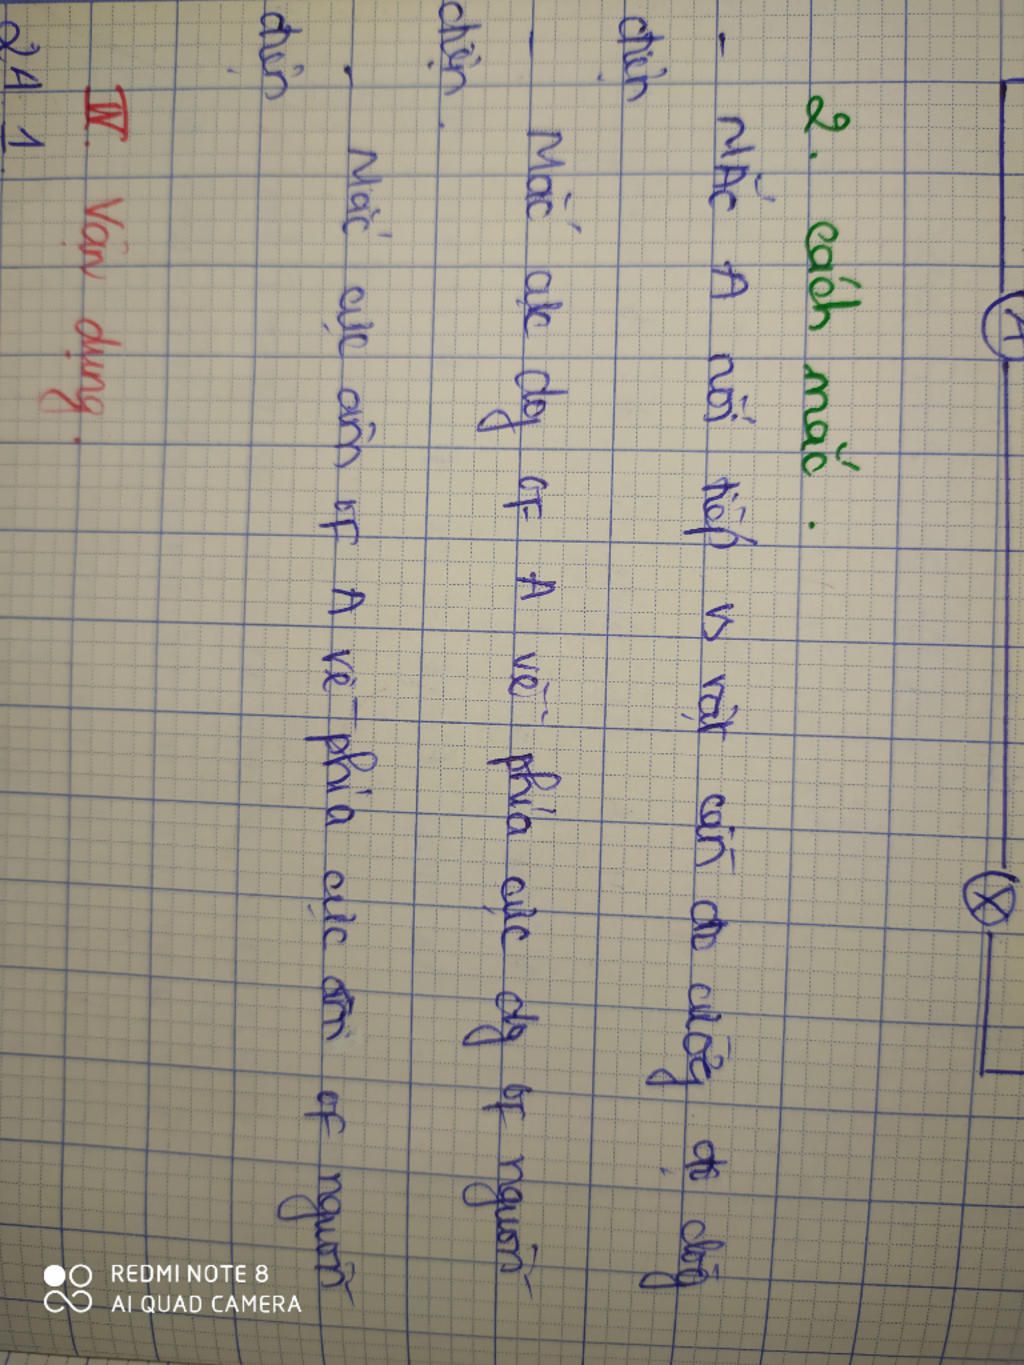 A
X
2. cách mắc.
- Mắc A nối tiếp vs vật cần đo cường độ dòng
điện
- Mắc cực dg of A về phía cực dg of nguồn
điện.
- Mắc cực âm of A về phía cực âm of nguồn
điện
IV. Vận dụng.
REDMI NOTE 8
AI QUAD CAMERA